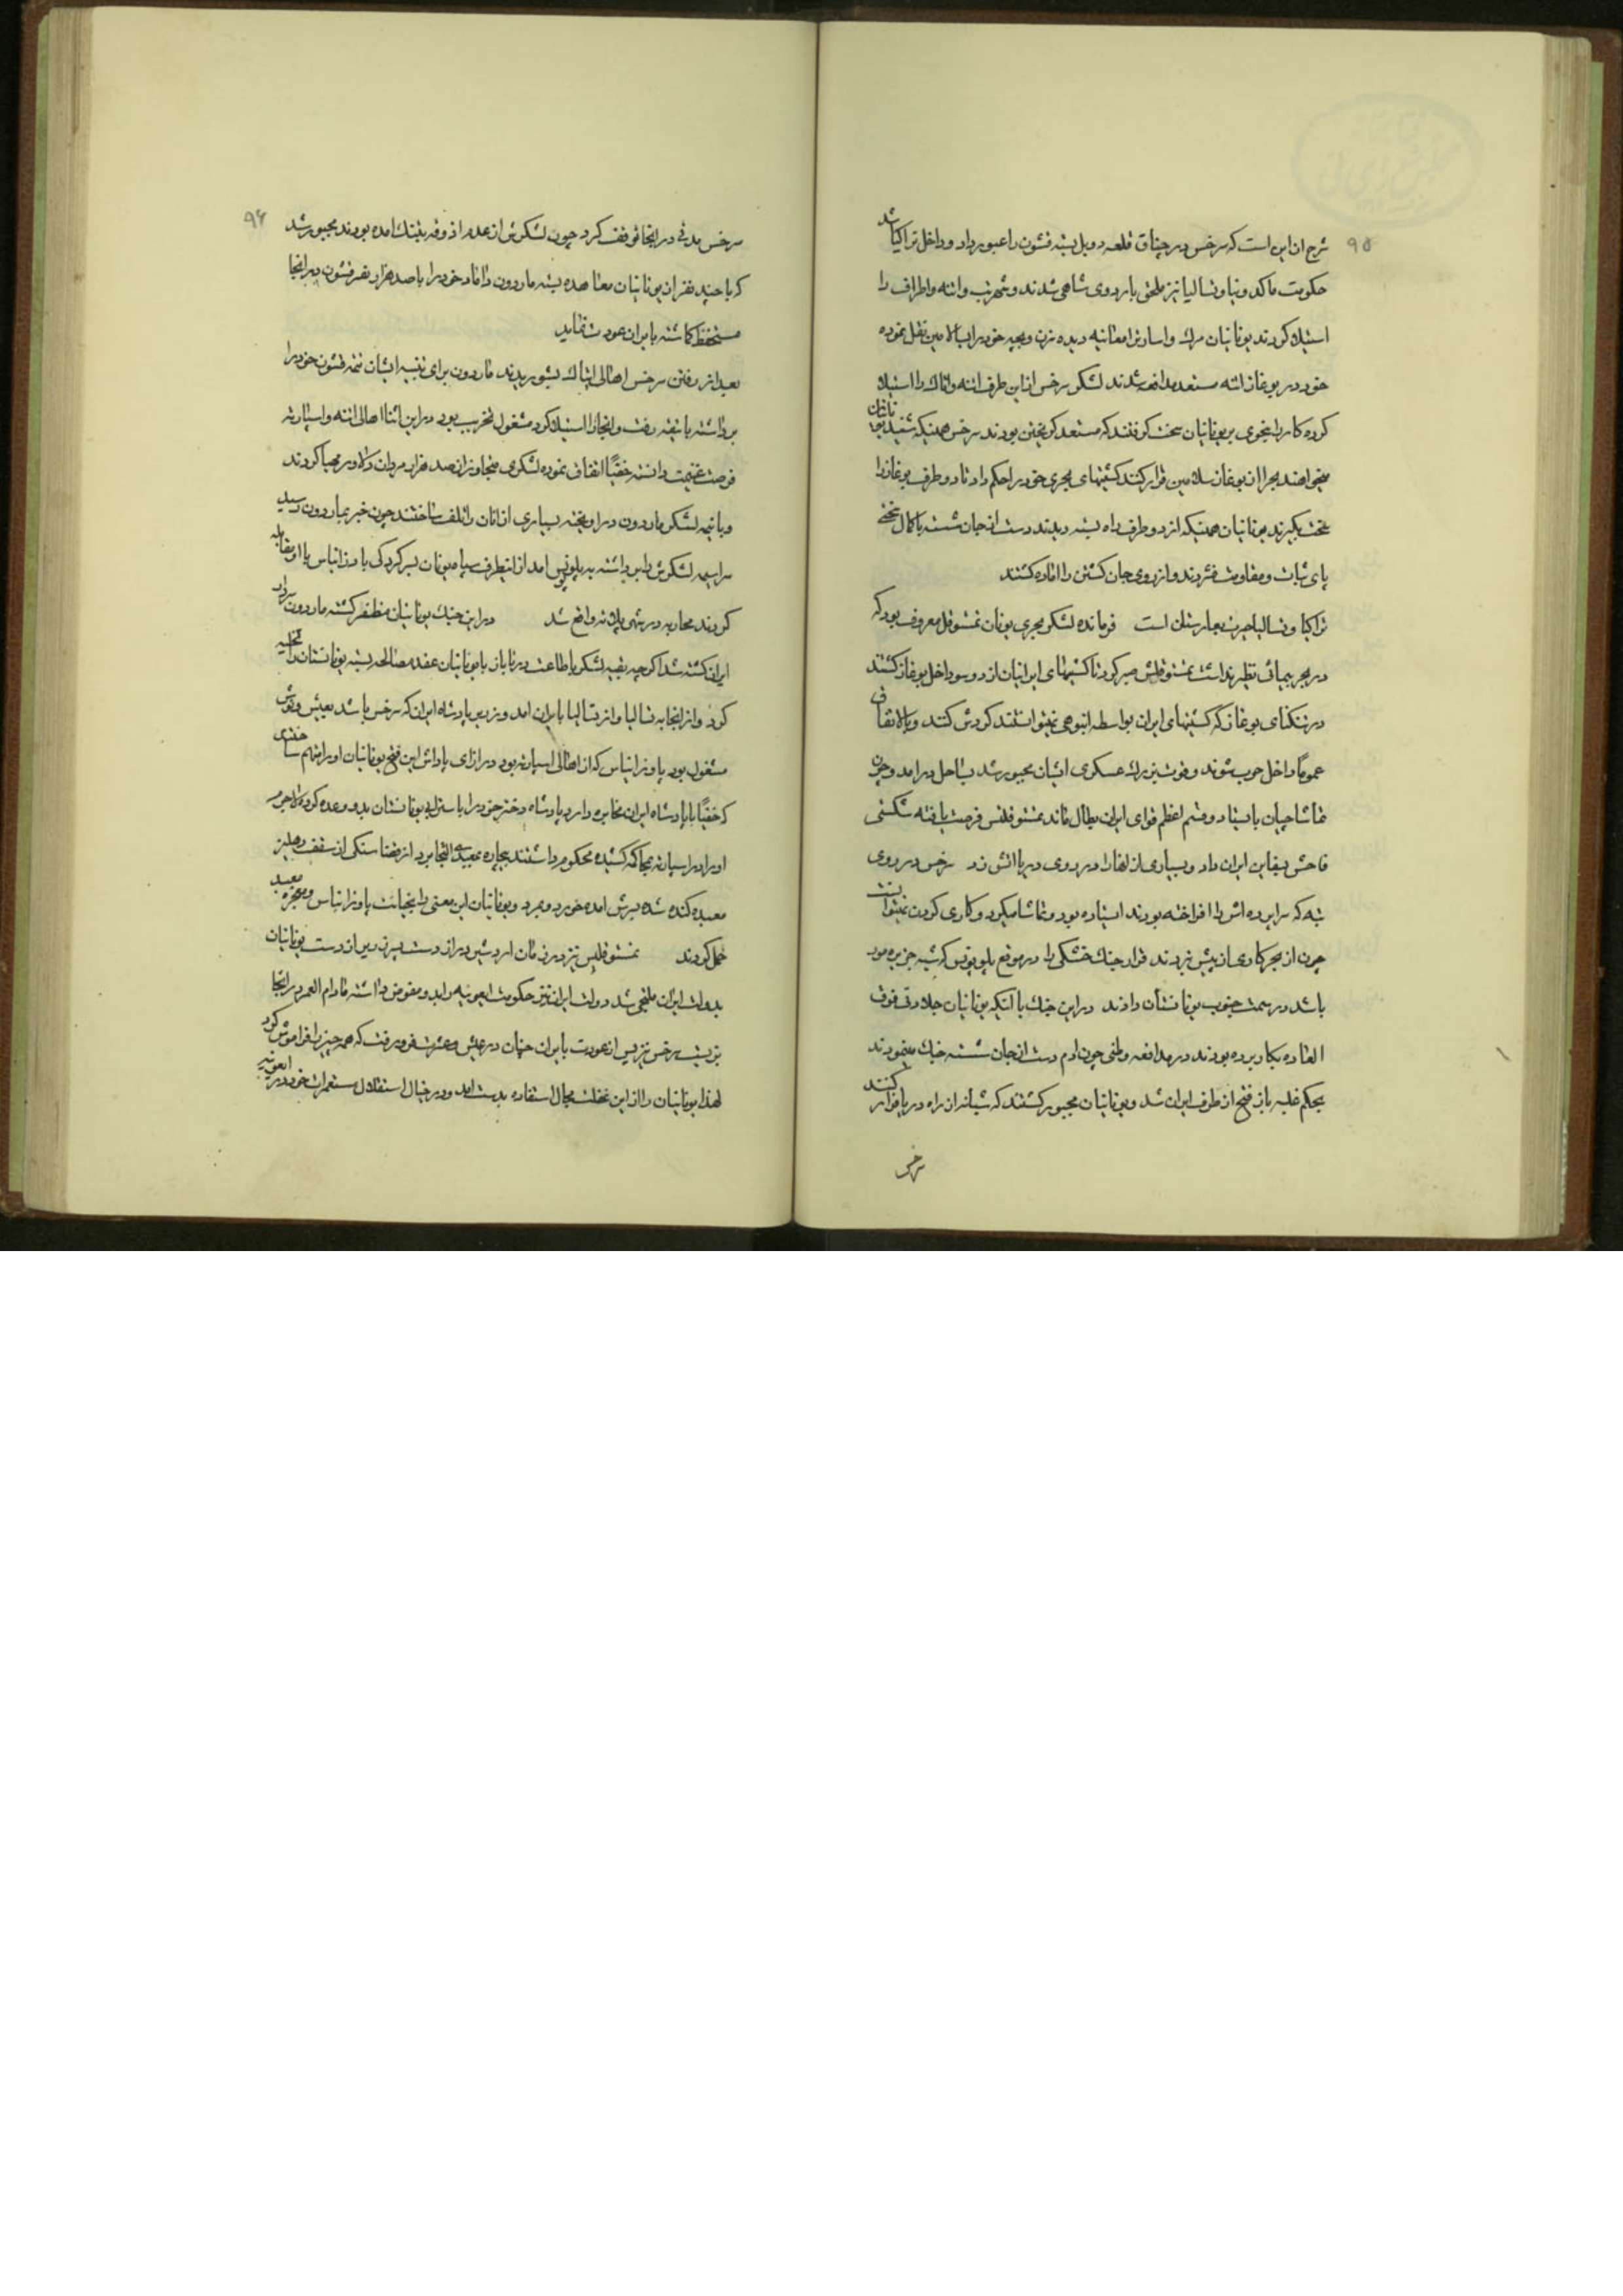 ۹۵
شرح ان این است که سرخس در چناق قلعه دو پل بسته قشون را عبور داد و داخل تراکیا شد
حکومت ماکدونیا و تسالیا نیز ملحق باردوی شاهی شدند و شهر تب و اتنه و اطراف را
استیلا کردند یونانیان مرگ و اسارت را معاینه دیده زن و بچه خود را بسالامین نقل نموده
خود در بوغاز اتنه مستعد مدافعه شدند لشکر سرخس از این طرف اتنه و اتاک را استیلا
کرده کار را بنحوی بر یونانیان سخت گرفتند که مستعد گریختن بودند سرخس همینکه شنید یونانیان
میخواهند بحرا از بوغاز سلامین فرار کنند کشتیهای بحری خود را حکم داد تا دو طرف بوغاز را
سخت بگیرند یونانیان همینکه از دو طرف راه بسته دیدند دست از جان شسته با کمال سختی
پای ثبات و مقاومت فشردند و از روی جان کشتن را اماده گشتند
تراکیا و تسالیا حرب بهارستان است فرمانده لشکر بحری یونان تمستوقل معروف بود که
در بحر پیمائی نظیر نداشت تمستوقلس صبر کرد تا کشتیهای ایرانیان از دو سو داخل بوغاز گشتند
در تنکنای بوغاز که کشتیهای ایران بواسطه انبوهی نمیتوانستند گردش کنند و بالاتفاق
عموما داخل حرب شوند و قوت بزرک عسکری ایشان مجبور شد بساحل درامد و چون
تماشاچیان باستاد و قسم اعظم قوای ایران بطال ماند تمستوقلس فرصت یافته شکستی
فاحش بسفاین ایران داد و بسیاری از انها را در روی دریا اتش زد سرخس در روی
تپه که سراپرده اش را افراخته بودند استاده بود و تماشا میکرد و کاری کردن نمیتوانست
چون از بحر کاری از پیش نبردند قرار جنک خشکی را در موقع پلوپونس که شبه جزیره موره
باشد در سمت جنوب یونانستان دادند در این جنک با آنکه یونانیان جلادتی فوق
العاده بکار برده بودند در مدافعه وطنی چون ادم دست از جان شسته جنک مینمودند
بحکم غلبه باز فتح از طرف ایران شد و یونانیان مجبور گشتند که شبانه از راه دریا فرار کنند
سرخس
۹۶
سرخس مدتی در اینجا توقف کرد چون لشکرش از عدم اذوقه بتنک امده بودند مجبور شد
که با چند نفر از یونانیان معاهده بسته ماردون داماد خود را با صد هزار نفر قشون در انجا
مستحفظ گماشته بایران عودت نماید
بعد از رفتن سرخس اهالی اتیاک بشوریدند ماردون برای تنبیه ایشان نیمه قشون خود را
برداشته باتنه رفت و انجا را استیلا کرد مشغول تخریب بود در این اثنا اهالی اتنه و اسپارته
فرصت غنیمت دانسته خفیا اتفاق نموده لشکری متجاوز از صد هزار مردان دلاور مهیا کردند
و با نیمه لشکر ماردون در اویخته بسیاری از انان را تلف ساختند چون خبر بماردون رسید
سراسیمه لشکرش را برداشته به پلوپونس امد از انطرف سپاه یونان بسرکردکی پاوزانیاس با او مقابله
کردند محاربه در شهر پلاته واقع شد در این جنک یونانیان مظفر گشته ماردون سردار
ایران کشته شد اگرچه بقیه لشکر باطاعت درنا باز با یونانیان عقد مصالحه بسته یونانستان را تخلیه
کرد و از انجا به تسالیا و از تسالیا بایران امد و نزدیک پادشاه ایران که سرخس باشد بعیش و نوش
مشغول بود پاوزانیاس که از اهالی اسپارته بود در ازای پاداش این فتح یونانیان او را متهم ساختند
که خفیا با پادشاه ایران مخابره دارد پادشاه دختر خود را با ستراپی یونانستان بدو وعده کرده لاجرم
او را در اسپارته بمحاکمه کشیده محکوم داشتند بیچاره بمعبدی التجا برد از قضا سنکی از سقف دهلیز
معبد کنده شده بسرش امده خورد و بمرد و یونانیان این معنی را بخیانت پاوزانیاس و معجزه معبد
حمل کردند تمستوقلس نیز در زمان اردشیر دراز دست پسر زریر از دست یونانیان
بدولت ایران ملتجی شد دولت ایران نیز حکومت ایونیه را بدو مفوض داشته مادام العمر در انجا
بزیست سرخس نیز پس از عودت بایران چنان در عیش و عشرت فرو رفت که همه چیز را فراموش کرد
لهذا یونانیان را از این غفلت مجال استفاده بدست امد و در خیال استقلال مستعمرات خود در ایونیه